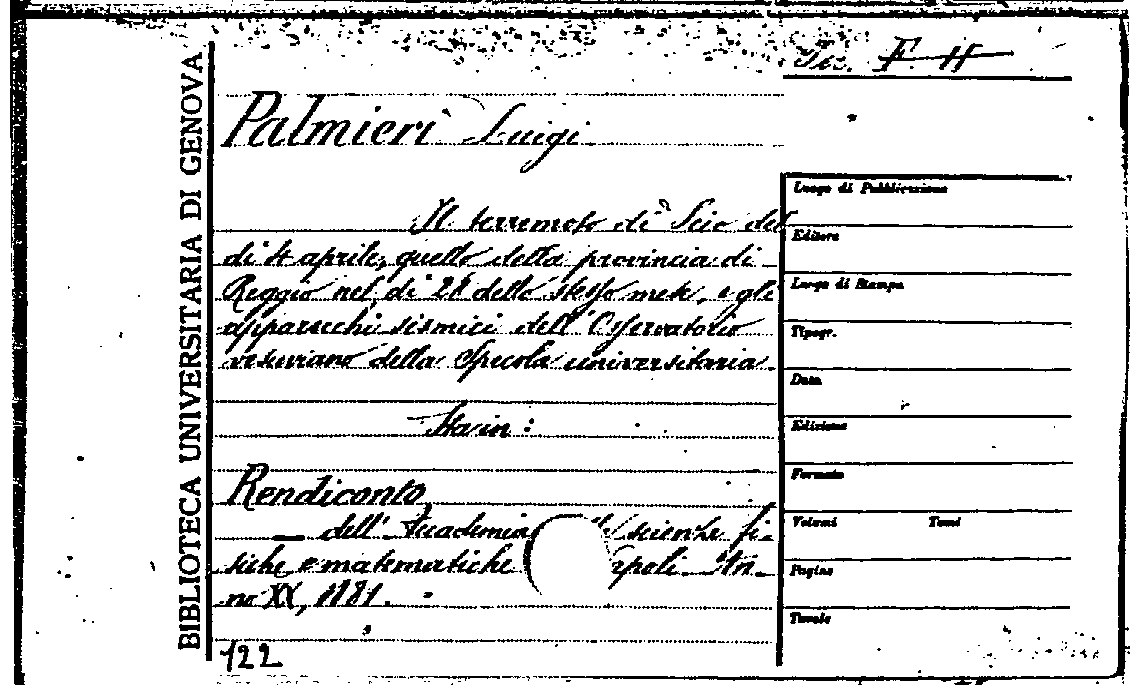 BIBLIOTECA UNIVERSITARIA DI GENOVA
F. H
Palmieri Luigi
Il terremoto di Scio del
di 4 aprile, quello della provincia di
Reggio nel dì 28 dello stesso mese, e gli
apparecchi sismici dell'Osservatorio
vesuviano della Specola universitaria.
Sta in:
Rendiconto
— dell'Accademia scienze fi-
siche e matematiche An-
no XX, 1881.
122
Luogo di Pubblicazione
Editore
Luogo di Stampa
Tipogr.
Data
Edizione
Formato
Volumi Tomi
Pagine
Tavole